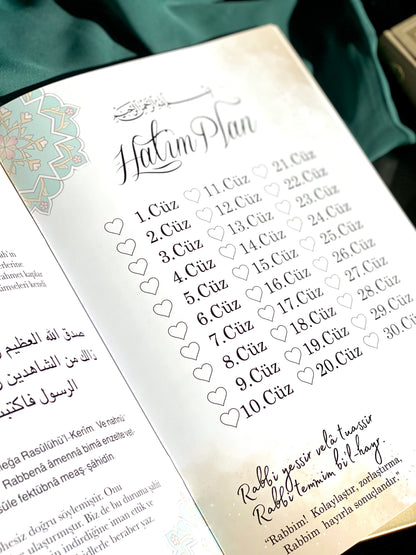 ah'ın
erlerine
rahmet kapılar
imseleri kendi
صدق الله العظيم و
ذالك من الشاهدين
الرسول فاكتب
Rasûlühü'l-Kerîm. Ve nahnü
Rabbenâ âmennâ bimâ enzelte ve
fektübnâ meaş-şâhidîn.
doğru söylemiştir. Onu
ulaştırmıştır. Biz de bu duruma şahit
indirdiğine iman ettik ve
beraber yaz.
بسم الله الرحمن الرحيم
Hatim Planı
1.Cüz 11.Cüz 21.Cüz
2.Cüz 12.Cüz 22.Cüz
3.Cüz 13.Cüz 23.Cüz
4.Cüz 14.Cüz 24.Cüz
5.Cüz 15.Cüz 25.Cüz
6.Cüz 16.Cüz 26.Cüz
7.Cüz 17.Cüz 27.Cüz
8.Cüz 18.Cüz 28.Cüz
9.Cüz 19.Cüz 29.Cüz
10.Cüz 20.Cüz 30.Cüz
Rabbi yessir velâ tuassir
Rabbi temmim bi'l-hayr.
"Rabbim! Kolaylaştır, zorlaştırma.
Rabbim hayırla sonuçlandır."